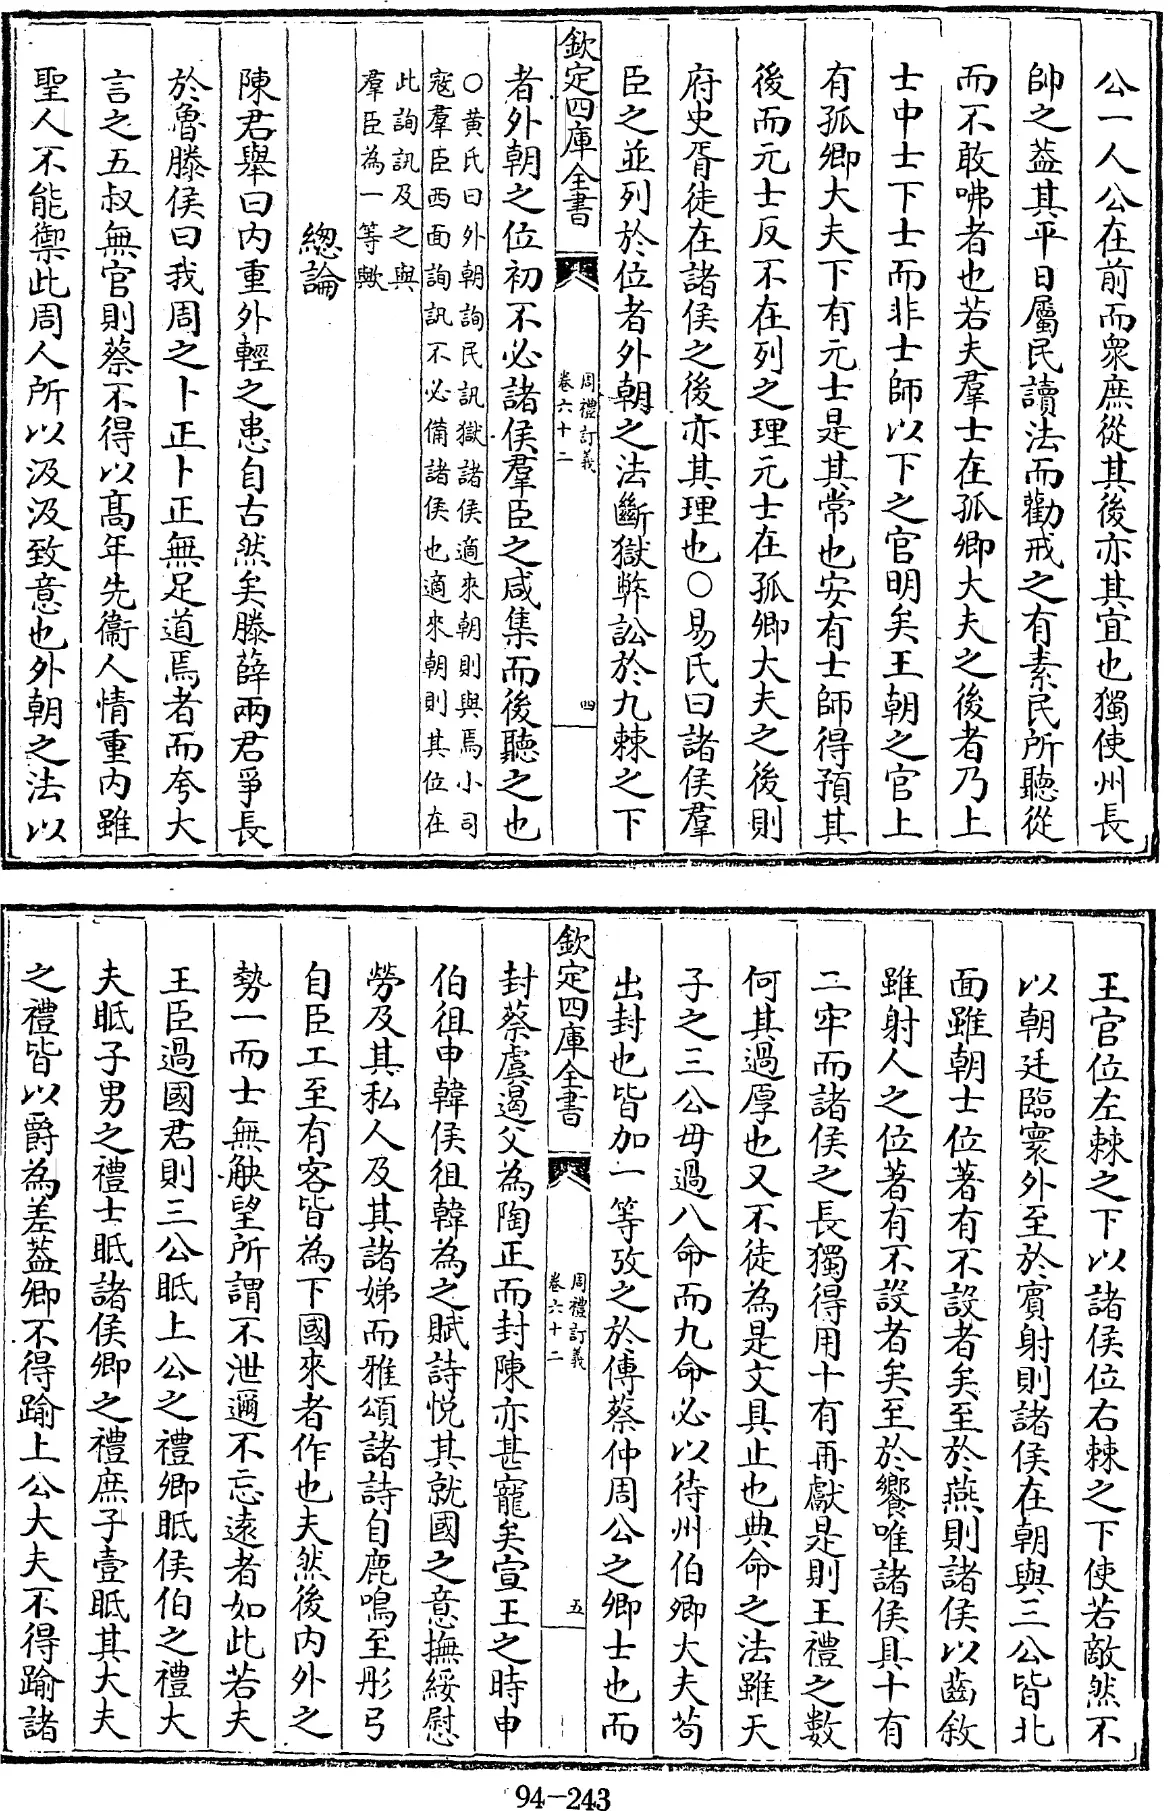 公一人公在前而衆庶從其後亦其宜也獨使州長
帥之葢其平日屬民讀法而勸戒之有素民所聽從
而不敢咈者也若夫羣士在孤卿大夫之後者乃上
士中士下士而非士師以下之官明矣王朝之官上
有孤卿大夫下有元士是其常也安有士師得預其
後而元士反不在列之理元士在孤卿大夫之後則
府史胥徒在諸侯之後亦其理也○易氏曰諸侯羣
臣之並列於位者外朝之法斷獄弊訟於九棘之下
欽定四庫全書
周禮訂義
卷六十二
四
者外朝之位初不必諸侯羣臣之咸集而後聽之也
○黄氏曰外朝詢民訊獄諸侯適來朝則與焉小司
寇羣臣西面詢訊不必備諸侯也適來朝則其位在
此詢訊及之與
羣臣為一等歟
總論
陳君舉曰内重外輕之患自古然矣滕薛兩君爭長
於魯滕侯曰我周之卜正卜正無足道焉者而夸大
言之五叔無官則蔡不得以高年先衞人情重内雖
聖人不能禦此周人所以汲汲致意也外朝之法以
王官位左棘之下以諸侯位右棘之下使若敵然不
以朝廷臨寰外至於賓射則諸侯在朝與三公皆北
面雖朝士位著有不設者矣至於燕則諸侯以齒敘
雖射人之位著有不設者矣至於饗唯諸侯具十有
二牢而諸侯之長獨得用十有再獻是則王禮之數
何其過厚也又不徒為是文具止也典命之法雖天
子之三公毋過八命而九命必以待州伯卿大夫苟
出封也皆加一等攷之於傳蔡仲周公之卿士也而
欽定四庫全書
周禮訂義
卷六十二
五
封蔡虞遏父為陶正而封陳亦甚寵矣宣王之時申
伯徂申韓侯徂韓為之賦詩悦其就國之意撫綏慰
勞及其私人及其諸娣而雅頌諸詩自鹿鳴至彤弓
自臣工至有客皆為下國來者作也夫然後内外之
勢一而士無觖望所謂不泄邇不忘遠者如此若夫
王臣過國君則三公眡上公之禮卿眡侯伯之禮大
夫眡子男之禮士眡諸侯卿之禮庶子壹眡其大夫
之禮皆以爵為差葢卿不得踰上公大夫不得踰諸
94-243